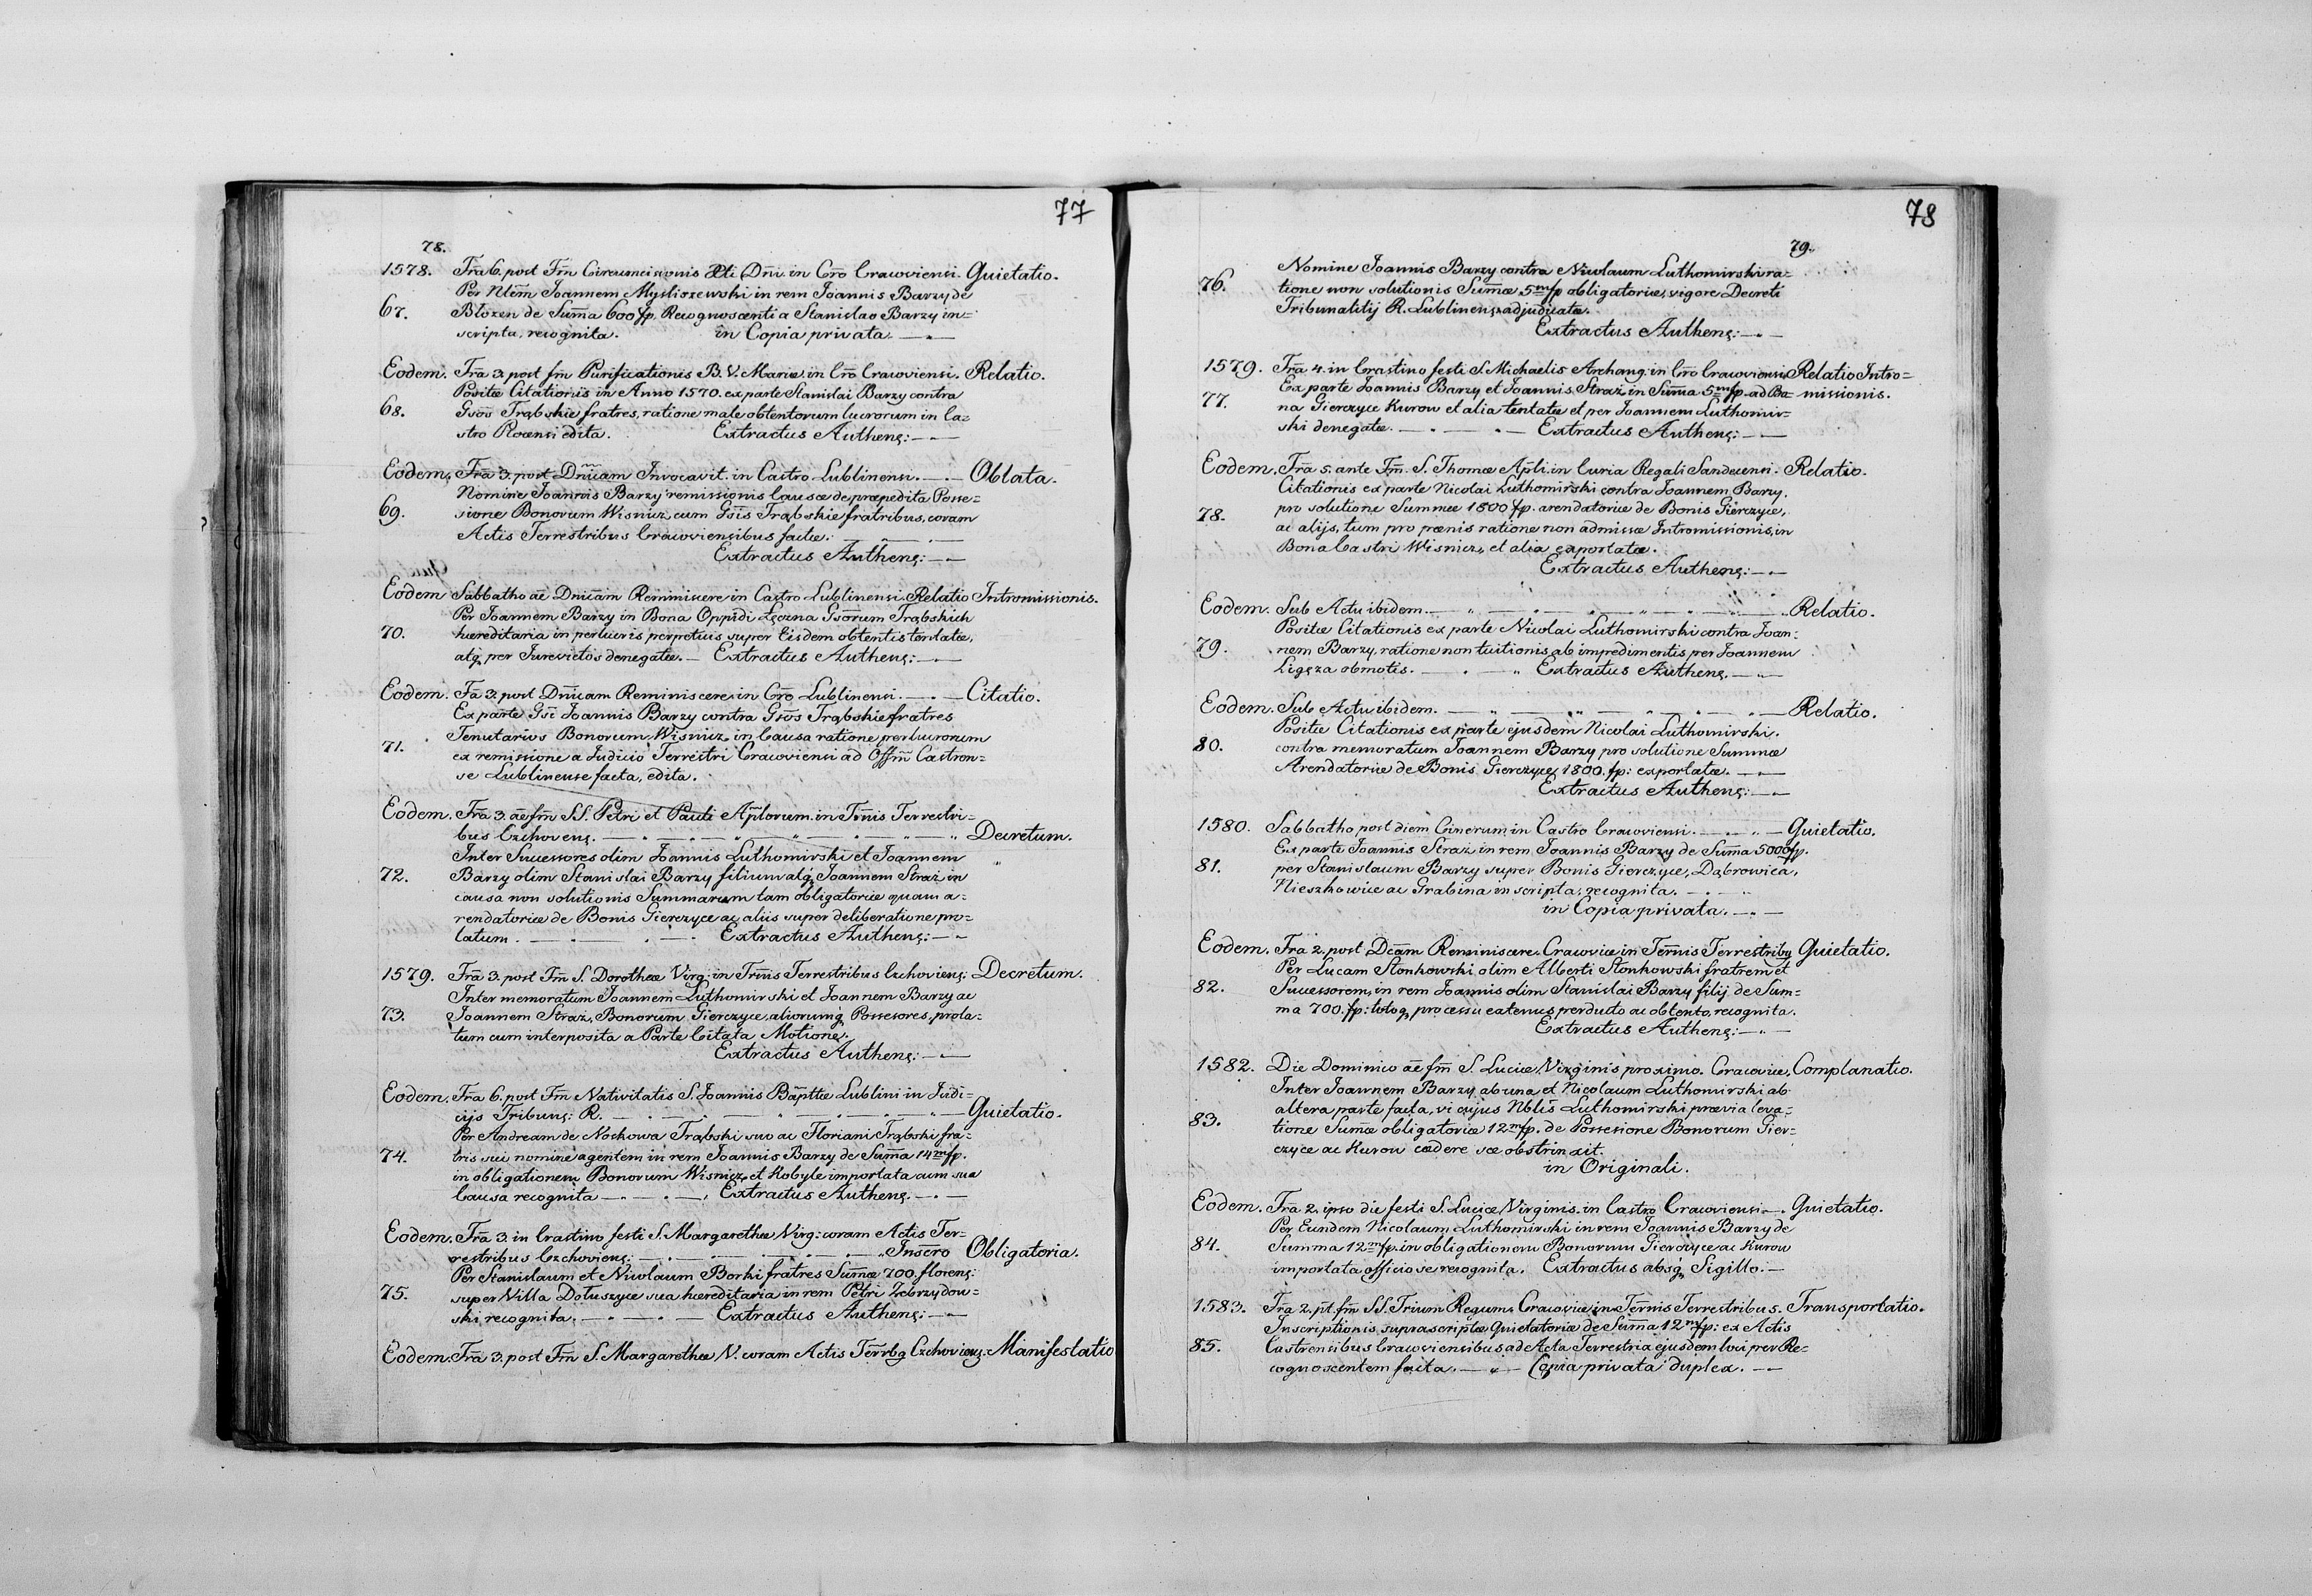 77
78.
1578. Fr̃a 6. post Fm̃ Circumcisionis Xti Dñi in Crõ Cracoviensi. Quietatio.
Per Nlem̃ Joannem Mysliszewski in rem Joannis Barzy de
67. Błozen de Sum̃a 600 fp. Recognoscenti a Stanislao Barzy in=
scripta, recognita. in Copia privata. — . —
Eodem. Fr̃a 3. post fm̃ Purificationis B. V. Mariæ in Crõ Cracoviensi. Relatio.
Positæ Citationis in Anno 1570. ex parte Stanislai Barzy contra
68. Gsõs Trąbskie fratres, ratione male obtentorum lucrorum in Ca=
stro Rocensi edita. Extractus Authens: — . —
Eodem, Fr̃a 3. post Dnĩcam Invocavit. in Castro Lublinensi. — . — Oblata.
Nomine Joannis Barzy remissionis Causæ de præpedita Posse=
69. sione Bonorum Wisnicz, cum Gsĩs Trąbskie fratribus, coram
Actis Terrestribus Cracoviensibus factæ.
Extractus Authens: — . —
Eodem Sabbatho ãe Dnĩcam Reminiscere in Castro Lublinensi. Relatio Intromissionis.
Per Joannem Barzy in Bona Oppidi Łęczna Gsõrum Trąbskich
70. hæreditaria in perlucris perpetuis super Eisdem obtentis tentatæ,
atq per Jurevictos denegatæ. — Extractus Authens: — . —
Eodem. Fã 3. post Dnĩcam Reminiscere in Crõ Lublinensi. — . — Citatio.
Ex parte Gsĩ Joannis Barzy contra Gsõs Trąbskie fratres
Tenutarios Bonorum Wisnicz, in Causa ratione perlucrorum
71. ex remissione a Judicio Terrestri Cracoviensi ad Offm̃ Castren=
se Lublinense facta, edita.
Eodem. Fr̃a 3. ãe fm̃ SS. Petri et Pauli Aplorum. in Tm̃is Terrestri=
bus Czchovens. — . — . — Decretum.
Inter Successores olim Joannis Luthomirski et Joannem
72. Barzy olim Stanislai Barzy filium atq Joannem Straż in
causa non solutionis Summarum tam obligatoriæ quam a=
rendatoriæ de Bonis Gierczyce ac aliis super deliberatione pro=
latum. — . — . — Extractus Authens: — . —
1579. Fr̃a 3. post Fm̃ S. Dorotheæ Virg: in Tm̃is Terrestribus Czchoviens: Decretum.
Inter memoratum Joannem Luthomirski et Joannem Barzy ac
73. Joannem Straż, Bonorum Gierczyce, aliorumq Possesores, prola=
tum cum interposita a Parte Citata Motione.
Extractus Authens: — . —
Eodem, Fr̃a 6. post Fm̃ Nativitatis S. Joannis Bãpttæ Lublini in Judi=
cijs Tribuns: R. — . — . — Quietatio.
Per Andream de Noskowa Trąbski suo ac Floriani Trąbski fra=
74. tris sui nomine agentem in rem Joannis Barzy de Sum̃a 14 m̃ fp.
in obligationem Bonorum Wisnicz, et Kobyle importata cum sua
Causa recognita — . — . —, Extractus Authens. — . —
Eodem. Fr̃a 3. in Crastino festi S. Margarethæ Virg: coram Actis Ter=
restribus Czchoviens: — . — . — Inscrõ Obligatoria.
Per Stanislaum et Nicolaum Borki fratres Sum̃æ 700. florens:
75. super Villa Dołuszyce sua hæreditaria in rem Petri Zebrzydow=
ski recognita. — . — . — Extractus Authens: — . —
Eodem. Fr̃a 3. post Fm̃ S. Margarethæ V. coram Actis Ter̃rbq Czchoviens: Manifestatio
78
79.
Nomine Joannis Barzy contra Nicolaum Luthomirski ra=
76. tione non solutionis Sum̃æ 5 m̃ fp obligatoriæ, vigore Decreti
Tribunalitij R. Lublinens adjudicatæ.
Extractus Authens: — . —
1579. Fr̃a 4. in Crastino festi S Michaelis Archang: in Crõ Cracoviensi. Relatio Intro=
Ex parte Joannis Barzy et Joannis Straż in Sum̃a 5 m̃ fp. ad Bo= missionis.
77. na Gierczyce Kurow et alia tentatæ et per Joannem Luthomir=
ski denegatæ. — . — . — Extractus Authens: — . —
Eodem, Fr̃a 5. ante Fm̃. S. Thomæ Apli. in Curia Regali Sandecensi. Relatio.
Citationis ex parte Nicolai Luthomirski contra Joannem Barzy.
78. pro solutione Summæ 1800 fp. arendatoriæ de Bonis Gierczyce,
ac alijs, tum pro pœnis ratione non admissæ Intromissionis, in
Bona Castri Wisnicz, et alia exportatæ.
Extractus Authens: — . —
Eodem. Sub Actu ibidem. — . — . — Relatio.
Positæ Citationis ex parte Nicolai Luthomirski contra Joan=
79. nem Barzy, ratione non tuitionis ab impedimentis per Joannem
Ligęza obmotis. — . — Extractus Authens. — . —
Eodem. Sub Actu ibidem. — . — . — Relatio.
Positæ Citationis ex parte ejusdem Nicolai Luthomirski.
80. contra memoratum Joannem Barzy pro solutione Summæ
Arendatoriæ de Bonis Gierczyce, 1800. fp: exportatæ. — . —
Extractus Authens: — . —
1580. Sabbatho post diem Cinerum in Castro Cracoviensi. — . — Quietatio.
Ex parte Joannis Straż in rem Joannis Barzy de Sum̃a 5000 fp.
81. per Stanislaum Barzy super Bonis Gierczyce, Dąbrowica,
Nieszkowice ac Grabina inscripta, recognita. — . —
in Copia privata. — . —
Eodem. Fr̃a 2. post Dcãm Reminiscere. Cracoviæ in Term̃is Terrestribq Quietatio.
Per Lucam Stonkowski olim Alberti Stonkowski fratrem et
82. Successorem, in rem Joannis olim Stanislai Barzy filij de Sum=
ma 700. fp: totoq, processu eatenus perducto ac obtento, recognita.
Extractus Authens: — . —
1582. Die Dominico ãe fm̃ S. Luciæ Virginis proximo. Cracoviæ, Complanatio.
Inter Joannem Barzy ab una et Nicolaum Luthomirski ab
altera parte facta, vi cujus Nblis̃ Luthomirski prævia leva=
83. tione Sum̃æ obligatoriæ 12 m̃ fp. de Possesione Bonorum Gier=
czyce ac Kurow cædere sæ obstrinxit.
in Originali.
Eodem. Fr̃a 2. ipso die festi S. Luciæ Virginis. in Castro Cracoviensi — . Quietatio.
Per Eundem Nicolaum Luthomirski in rem Joannis Barzy de
84. Summa 12 m̃ fp. in obligationem Bonorum Gierczyce ac Kurow
importata officiose recognita. Extractus absq Sigillo. —
1583. Fr̃a 2. pt̃. fm̃ SS. Trium Regum. Cracoviæ in Term̃is Terrestribus. Transportatio.
Inscriptionis suprascriptæ Quietatoriæ de Sum̃a 12 m̃ fp: ex Actis
85. Castrensibus Cracoviensibus ad Acta Terrestria ejusdem loci per Re=
cognoscentem facta. — . — Copia privata duplex. — . —